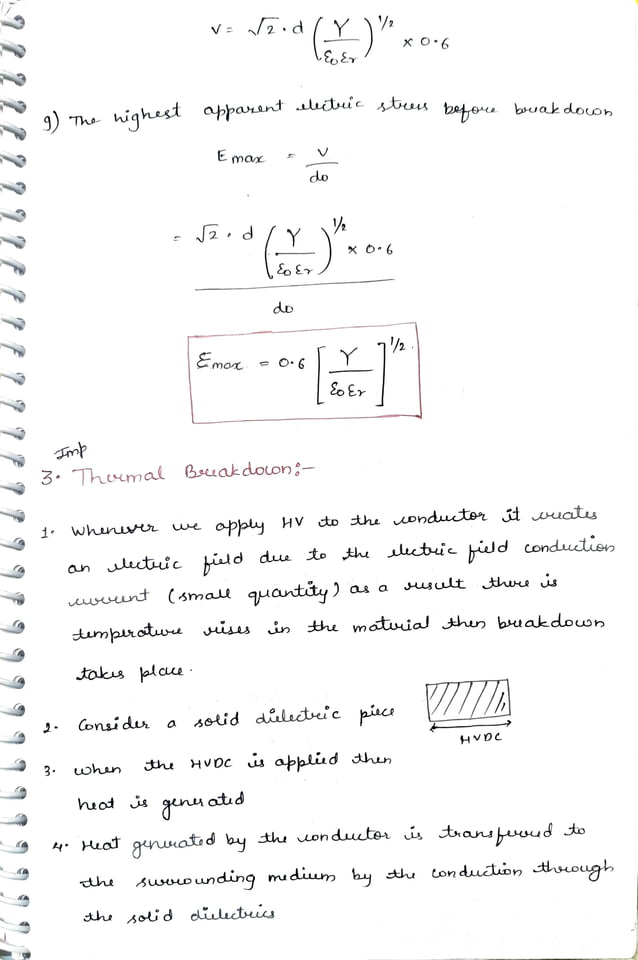 V = √2 . d (Y / ε0 εr)^1/2 × 0.6
9) The highest apparent electric stress before breakdown
E max = V / do
= √2 . d (Y / ε0 εr)^1/2 × 0.6 / do
Emax = 0.6 [Y / ε0 εr]^1/2.
Imp
3. Thermal Breakdown:-
1. Whenever we apply HV to the conductor it creates
an electric field due to the electric field conduction
current (small quantity) as a result there is
temperature rises in the material then breakdown
takes place.
2. Consider a solid dielectric piece
HVDC
3. when the HVDC is applied then
heat is generated
4. Heat generated by the conductor is transferred to
the surrounding medium by the conduction through
the solid dielectrics